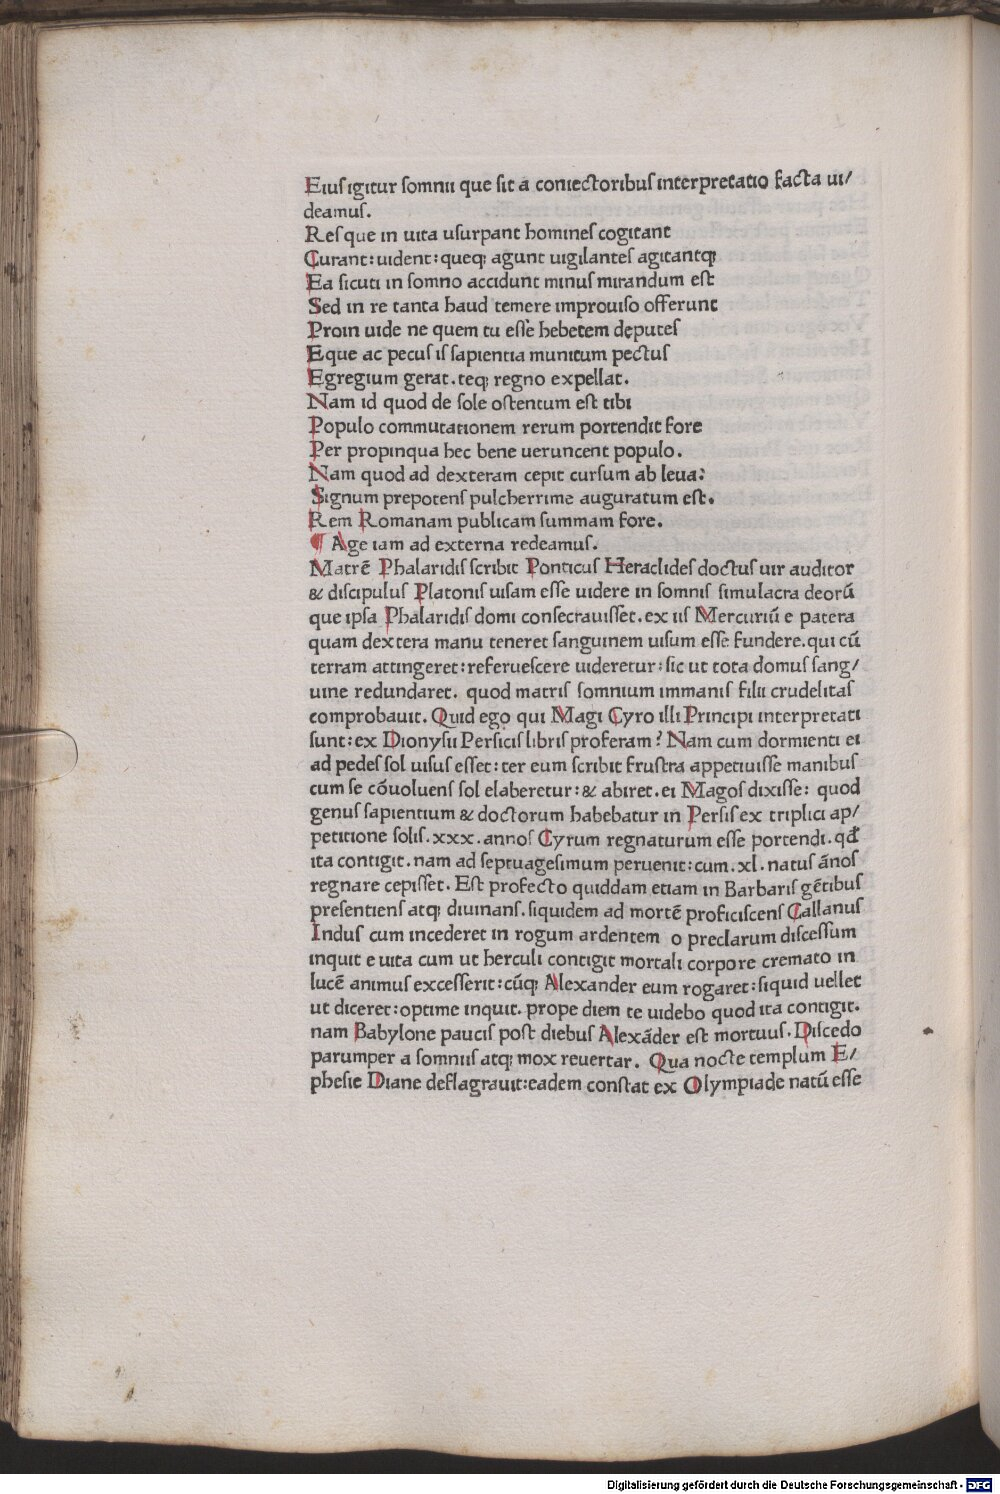 Eius igitur somnii que sit a coniectoribus interpretatio facta ui/
deamus.
Res que in uita usurpant homines cogitant
Curant: uident: queqꝫ agunt uigilantes agitantqꝫ
Ea sicuti in somno accidunt minus mirandum est
Sed in re tanta haud temere improuiso offerunt
Proin uide ne quem tu esse hebetem dęputes
Eque ac pecus is sapientia munitum pectus
Egregium gerat. teqꝫ regno expellat.
Nam id quod de sole ostentum est tibi
Populo commutationem rerum portendit fore
Per propinqua hec bene ueruncent populo.
Nam quod ad dexteram cepit cursum ab leua:
Signum prepotens pulcherrime auguratum est.
Rem Romanam publicam summam fore.
¶ Age iam ad externa redeamus.
Matrē Phalaridis scribit Ponticus Heraclides doctus uir auditor
& discipulus Platonis uisam esse uidere in somnis simulacra deorū
que ipsa Phalaridis domi consecrauisset. ex iis Mercuriū e patera
quam dextera manu teneret sanguinem uisum esse fundere. qui cū
terram attingeret: referuescere uideretur: sic ut tota domus sang/
uine redundaret. quod matris somnium immanis filii crudelitas
comprobauit. Quid ego qui Magi Cyro illi Principi interpretati
sunt: ex Dionysii Persicis libris proferam? Nam cum dormienti ei
ad pedes sol uisus esset: ter eum scribit frustra appetiuisse manibus
cum se cōuoluens sol elaberetur: & abiret. ei Magos dixisse: quod
genus sapientium & doctorum habebatur in Persis ex triplici ap/
petitione solis. xxx. annos Cyrum regnaturum esse portendi. qđ
ita contigit. nam ad septuagesimum peruenit: cum. xl. natus ānos
regnare cepisset. Est profecto quiddam etiam in Barbaris gētibus
presentiens atqꝫ diuinans. siquidem ad mortē proficiscens Callanus
Indus cum incederet in rogum ardentem o preclarum discessum
inquit e uita cum ut herculi contigit mortali corpore cremato in
lucē animus excesserit: cūqꝫ Alexander eum rogaret: siquid uellet
ut diceret: optime inquit. prope diem te uidebo quod ita contigit.
nam Babylone paucis post diebus Alexāder est mortuus. Discedo
parumper a somniis atqꝫ mox reuertar. Qua nocte templum E/
phesie Diane deflagrauit: eadem constat ex Olympiade natū esse
Digitalisierung gefördert durch die Deutsche Forschungsgemeinschaft - DFG